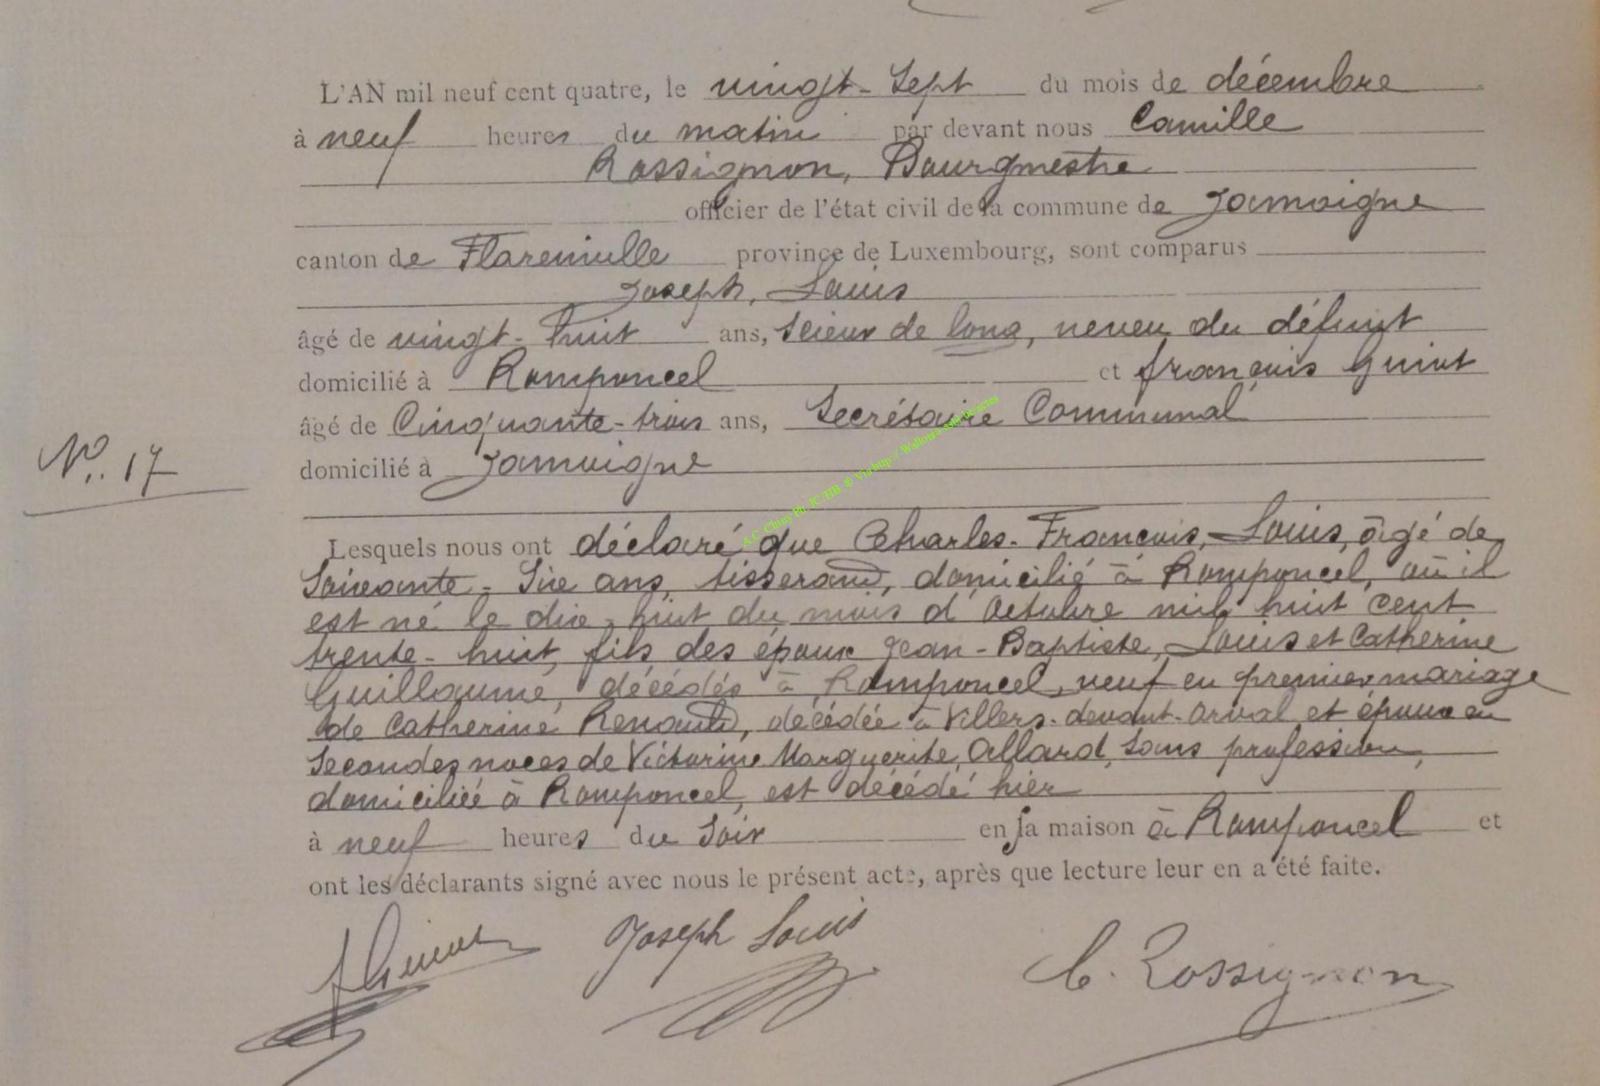 L'AN mil neuf cent quatre, le vingt-sept du mois de décembre
à neuf heures du matin par devant nous Camille
Rossignon, Bourgmestre
officier de l'état civil de la commune de Jamoigne
canton de Florenville province de Luxembourg, sont comparus
Joseph, Louis
âgé de vingt-huit ans, scieur de long, neveu du défunt
domicilié à Romponcel et françois Guiot
âgé de Cinquante-trois ans, Secrétaire Communal
domicilié à Jamoigne
N°. 17
Lesquels nous ont déclaré que Charles-François, Louis, âgé de
Soixante-Six ans, tisserand, domicilié à Romponcel, où il
est né le dix-huit du mois d'Octobre mil huit cent
trente-huit, fils des époux Jean-Baptiste, Louis et Catherine
Guillaume, décédés à Romponcel, veuf en premier mariage
de Catherine Renauld, décédée à Villers-devant-Orval et époux en
Secondes noces de Victorine Marguerite, Allard, Sans profession,
domiciliée à Romponcel, est décédé hier
à neuf heures du Soir en sa maison à Romponcel et
ont les déclarants signé avec nous le présent acte, après que lecture leur en a été faite.
f Guiot Joseph Louis C. Rossignon